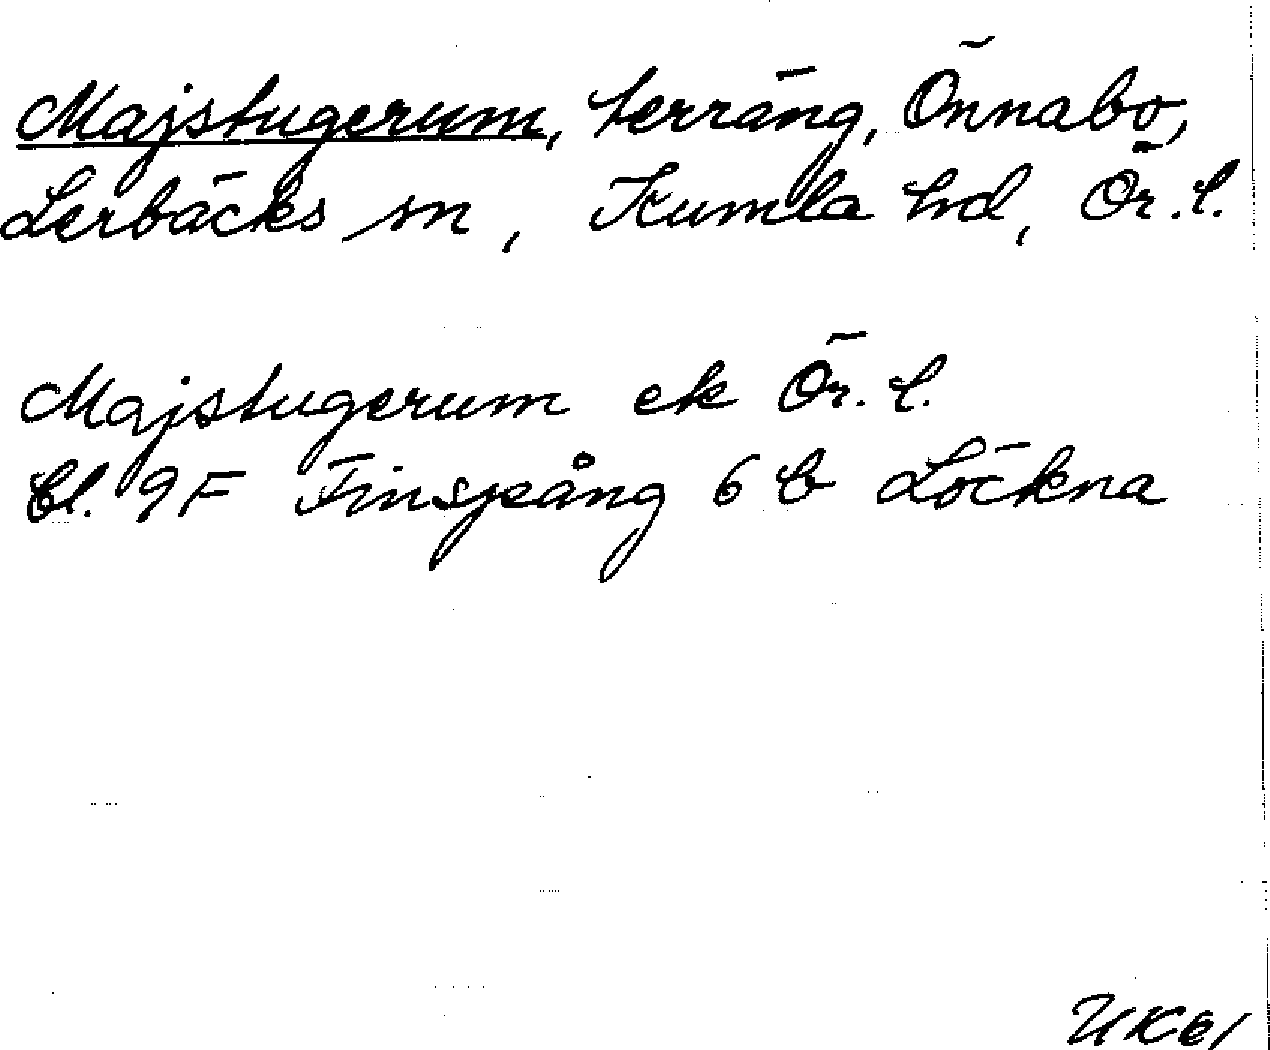 Majstugerum, terräng, Önnabo,
Lerbäcks sn, Kumla hd, Ör. l.
Majstugerum ek Ör. l.
bl. 9F Finspång 6 b Löckna